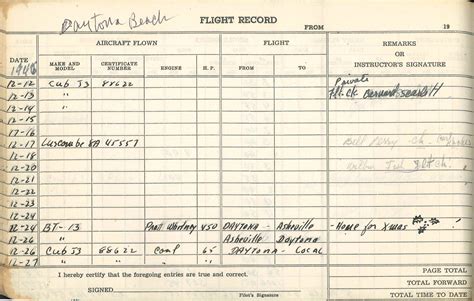 Daytona Beach
FLIGHT RECORD
FROM 19
AIRCRAFT FLOWN FLIGHT REMARKS OR INSTRUCTOR'S SIGNATURE
DATE MAKE AND MODEL CERTIFICATE NUMBER ENGINE H. P. FROM TO
1945
12-12 Cub J3 88622 Private
12-13 " Flt. Ck Bernard
12-14 "
12-15
17-16
12-17 Luscombe 8A 45557 Bill Perry Ck.
12-18
12-20
12-21
12-22
12-24 BT-13 Pratt Whitney 450 DAYTONA - Asheville - Home for Xmas
12-26 " Asheville Daytona
12-26 Cub J3 88622 Cont 65 DAYTONA - Local
12-27
I hereby certify that the foregoing entries are true and correct. PAGE TOTAL
TOTAL FORWARD
SIGNED
Pilot's Signature
TOTAL TO DATE